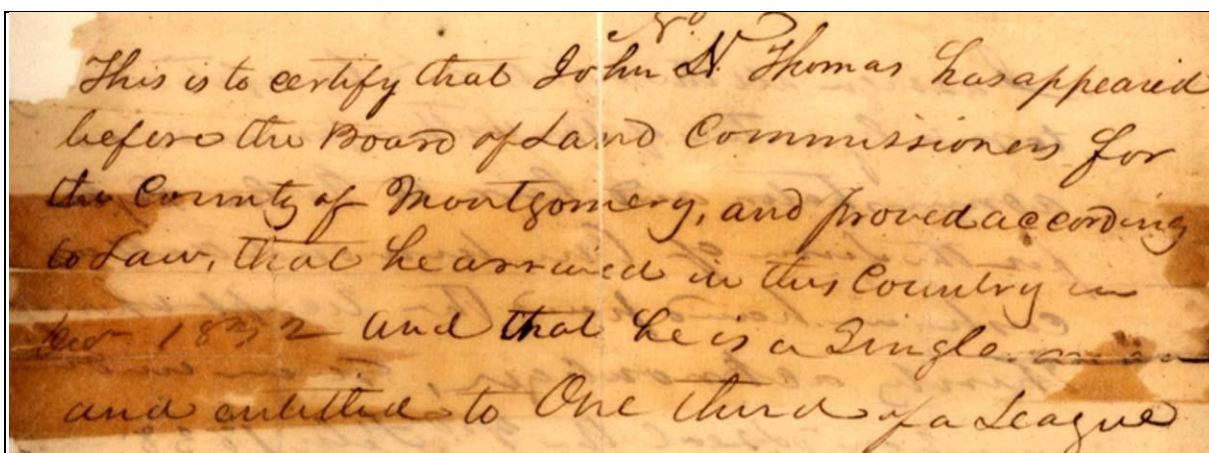 N.
This is to certify that John N. Thomas has appeared
before the Board of Land Commissioners for
the County of Montgomery, and proved according
to Law, that he arrived in this Country in
1832 and that he is a Single man
and entitled to One third of a League